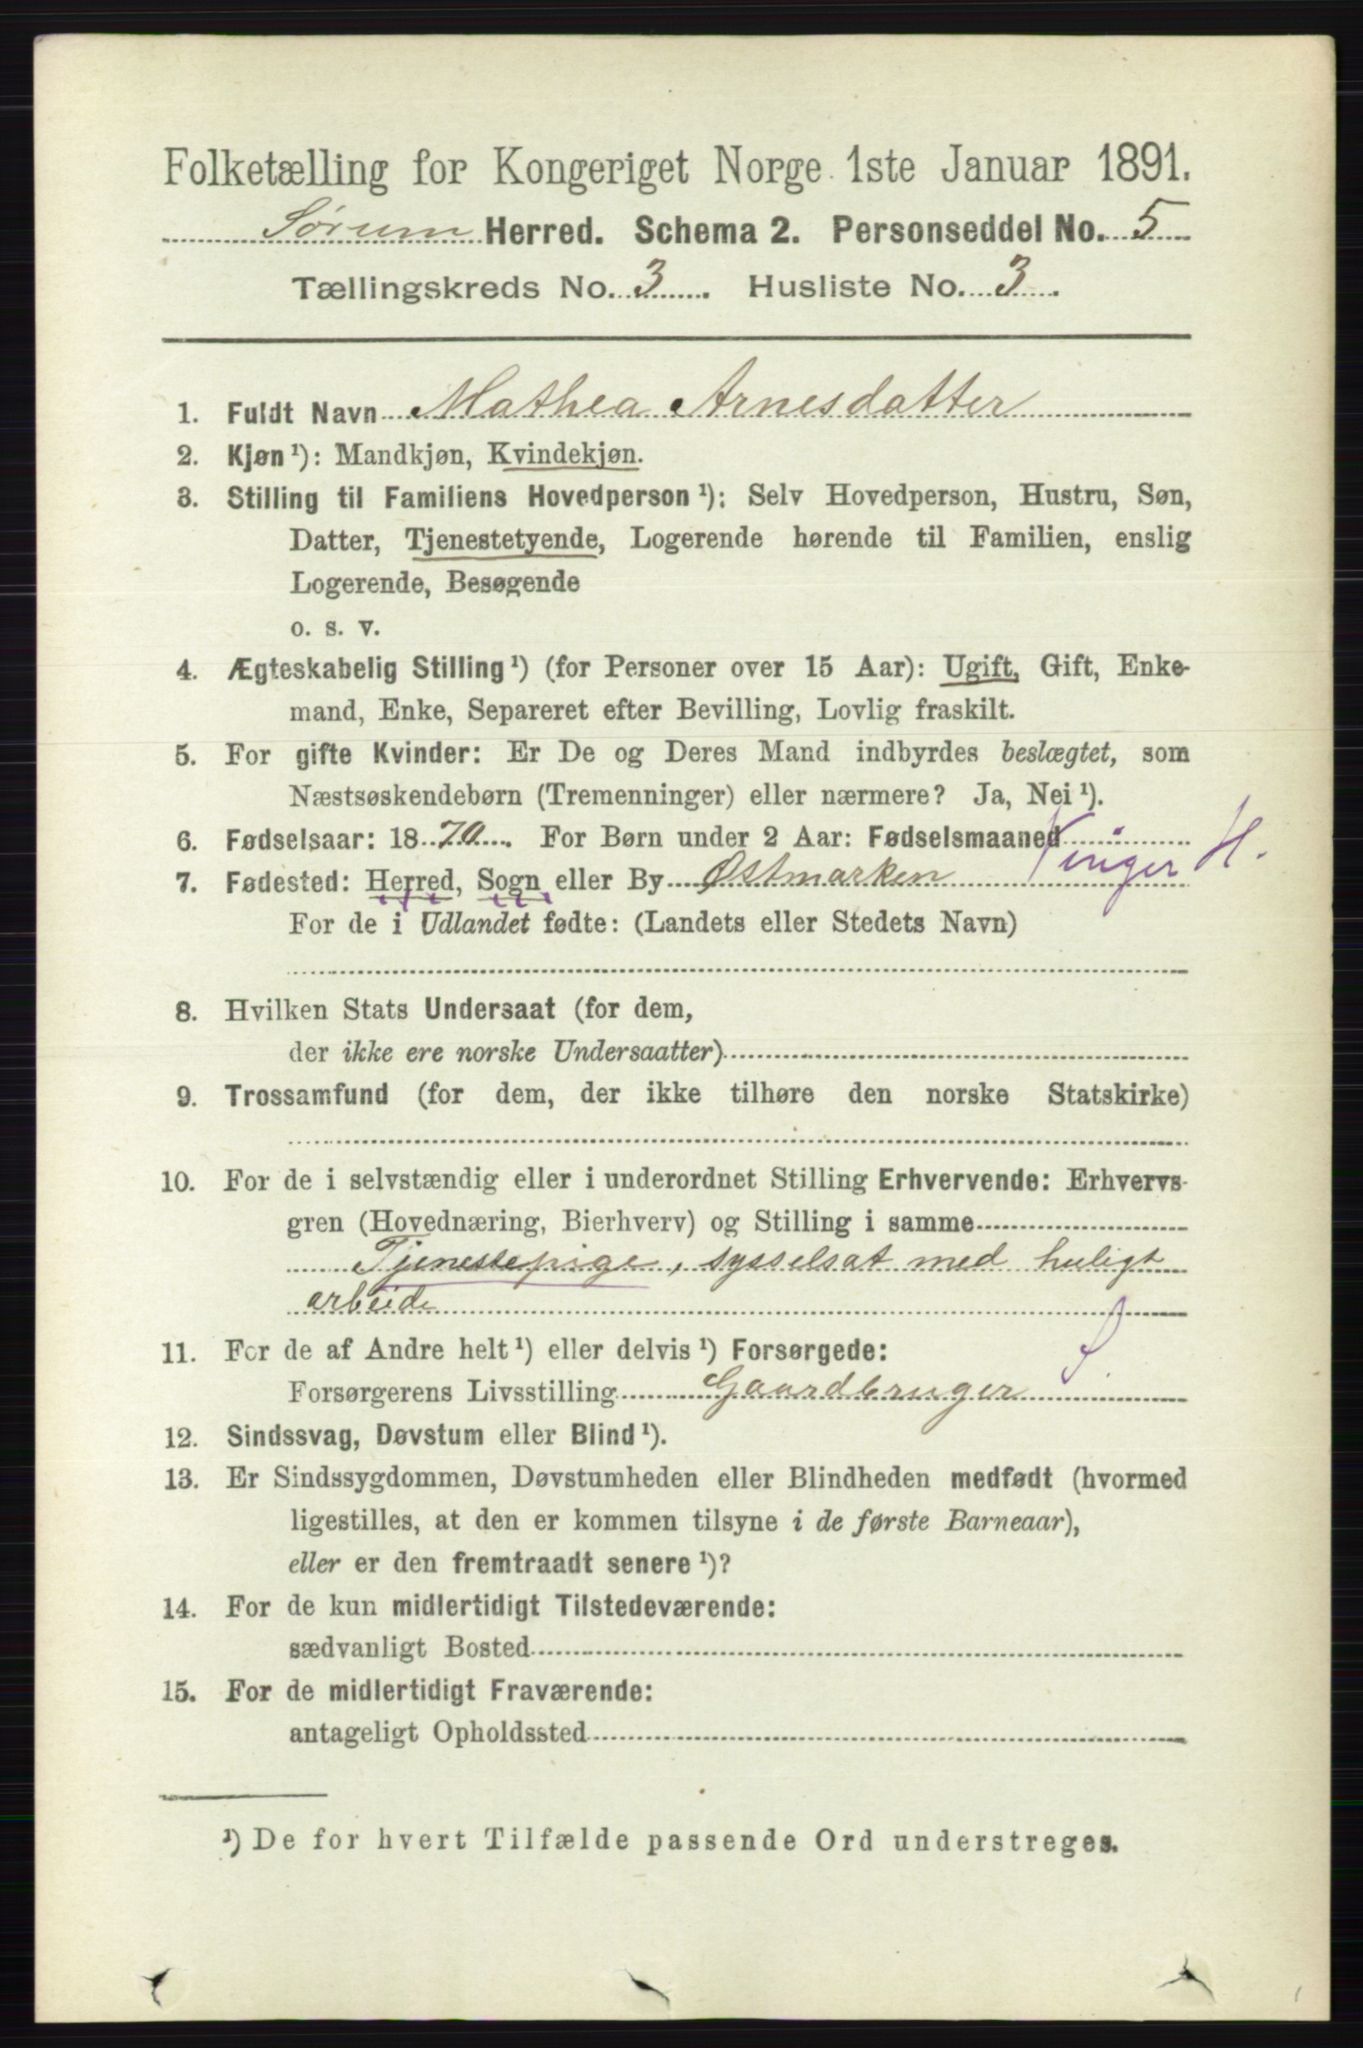 Folketælling for Kongeriget Norge 1ste Januar 1891.
Sørum Herred. Schema 2. Personseddel No. 5
Tællingskreds No. 3. Husliste No. 3.
1. Fuldt Navn Mathea Arnesdatter
2. Kjøn ¹): Mandkjøn, Kvindekjøn.
3. Stilling til Familiens Hovedperson ¹): Selv Hovedperson, Hustru, Søn,
Datter, Tjenestetyende, Logerende hørende til Familien, enslig
Logerende, Besøgende
o. s. v.
4. Ægteskabelig Stilling ¹) (for Personer over 15 Aar): Ugift, Gift, Enke-
mand, Enke, Separeret efter Bevilling, Lovlig fraskilt.
5. For gifte Kvinder: Er De og Deres Mand indbyrdes beslægtet, som
Næstsøskendebørn (Tremenninger) eller nærmere? Ja, Nei ¹).
6. Fødselsaar: 1870. For Børn under 2 Aar: Fødselsmaaned
7. Fødested: Herred, Sogn eller By Østmarken Vinger H.
For de i Udlandet fødte: (Landets eller Stedets Navn)
8. Hvilken Stats Undersaat (for dem,
der ikke ere norske Undersaatter)
9. Trossamfund (for dem, der ikke tilhøre den norske Statskirke)
10. For de i selvstændig eller i underordnet Stilling Erhvervende: Erhvervs-
gren (Hovednæring, Bierhverv) og Stilling i samme
Tjenestepige, sysselsat med huligt
arbeide
11. For de af Andre helt ¹) eller delvis ¹) Forsørgede:
Forsørgerens Livsstilling Gaardbruger S.
12. Sindssvag, Døvstum eller Blind ¹).
13. Er Sindssygdommen, Døvstumheden eller Blindheden medfødt (hvormed
ligestilles, at den er kommen tilsyne i de første Barneaar),
eller er den fremtraadt senere ¹)?
14. For de kun midlertidigt Tilstedeværende:
sædvanligt Bosted
15. For de midlertidigt Fraværende:
antageligt Opholdssted
¹) De for hvert Tilfælde passende Ord understreges.